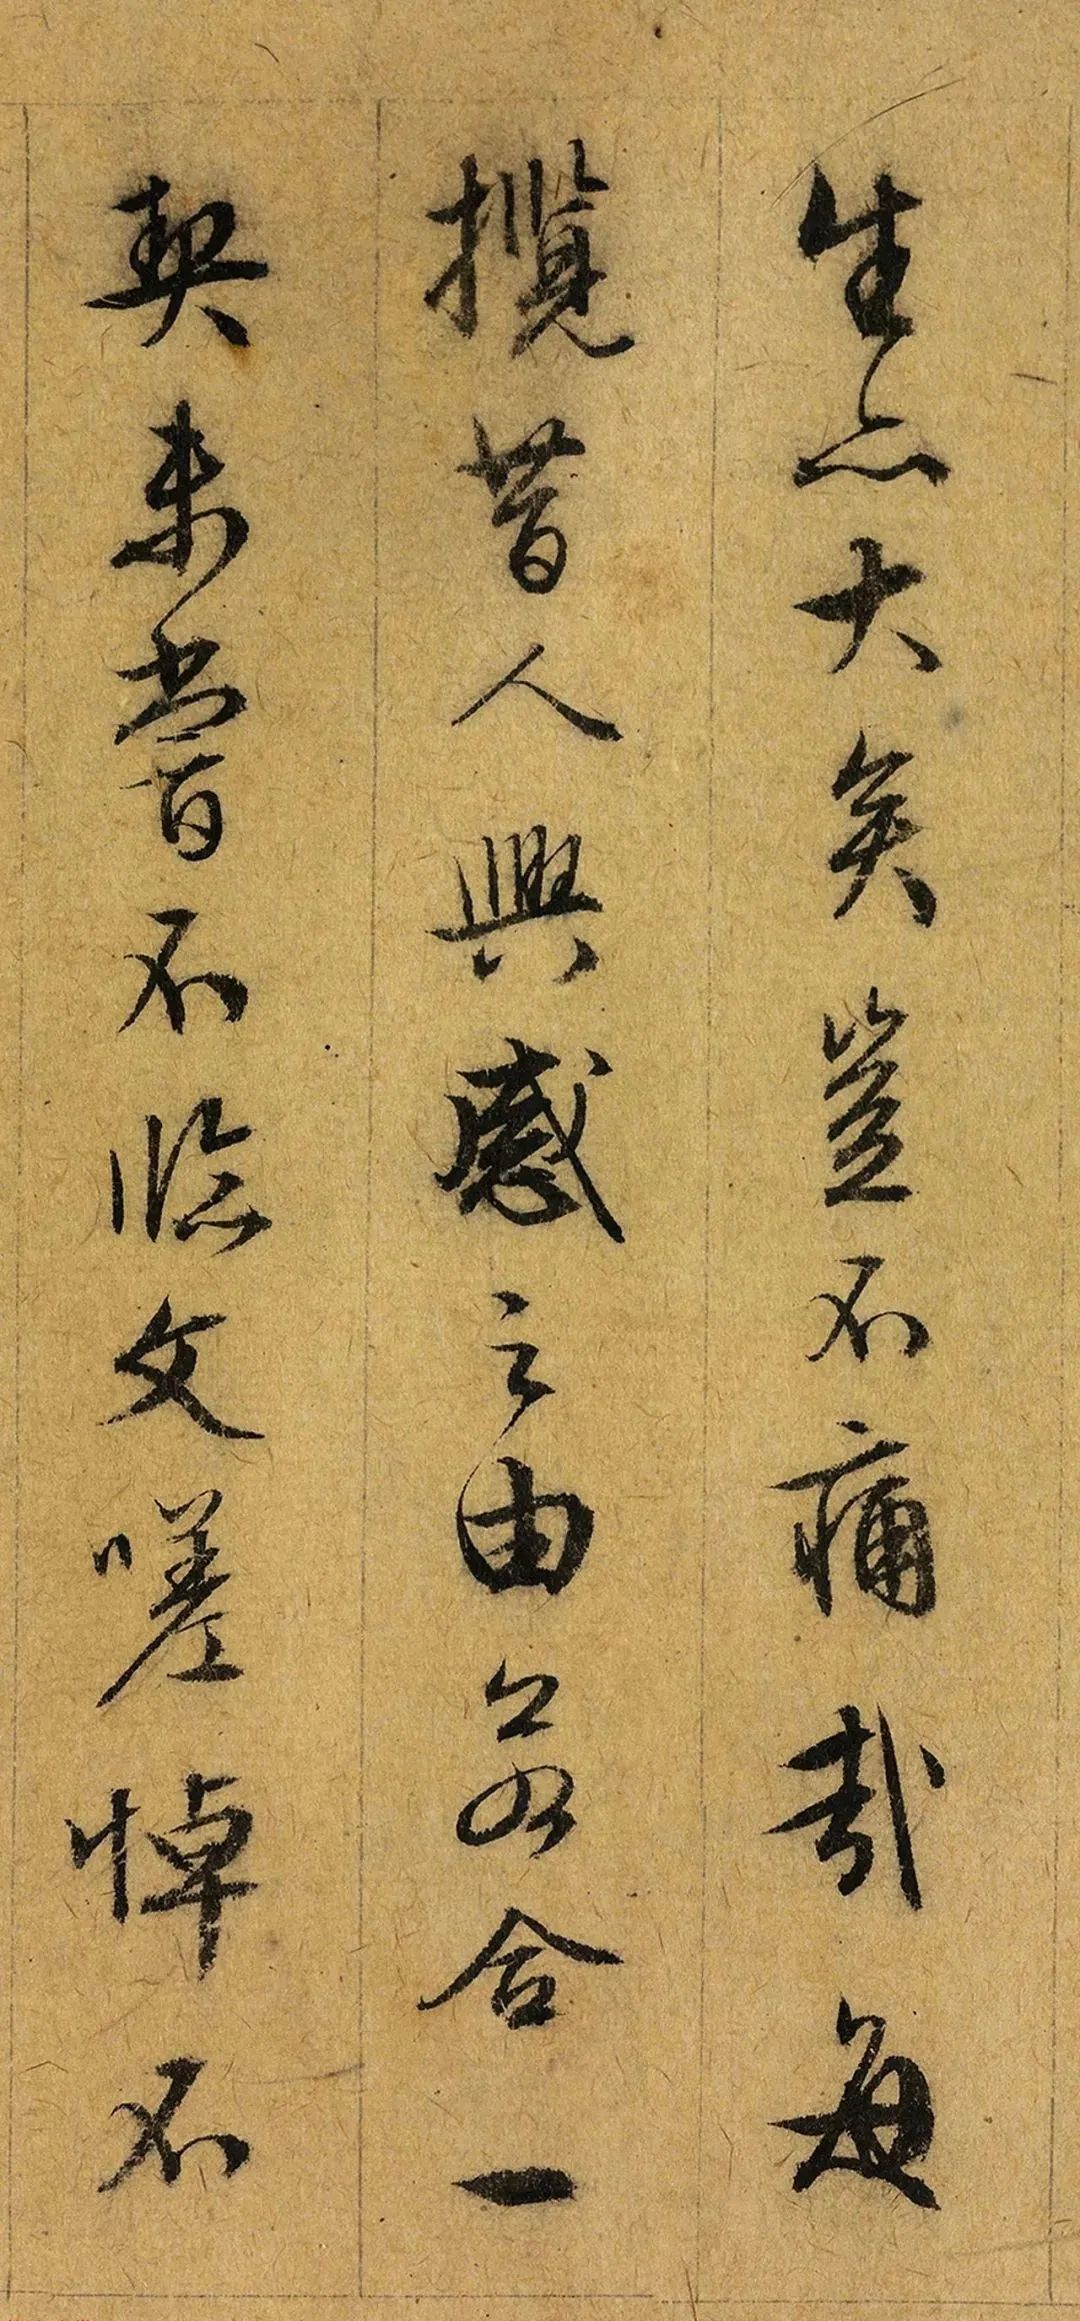 生亦大矣豈不痛哉每
攬昔人興感之由若合一
契未嘗不臨文嗟悼不